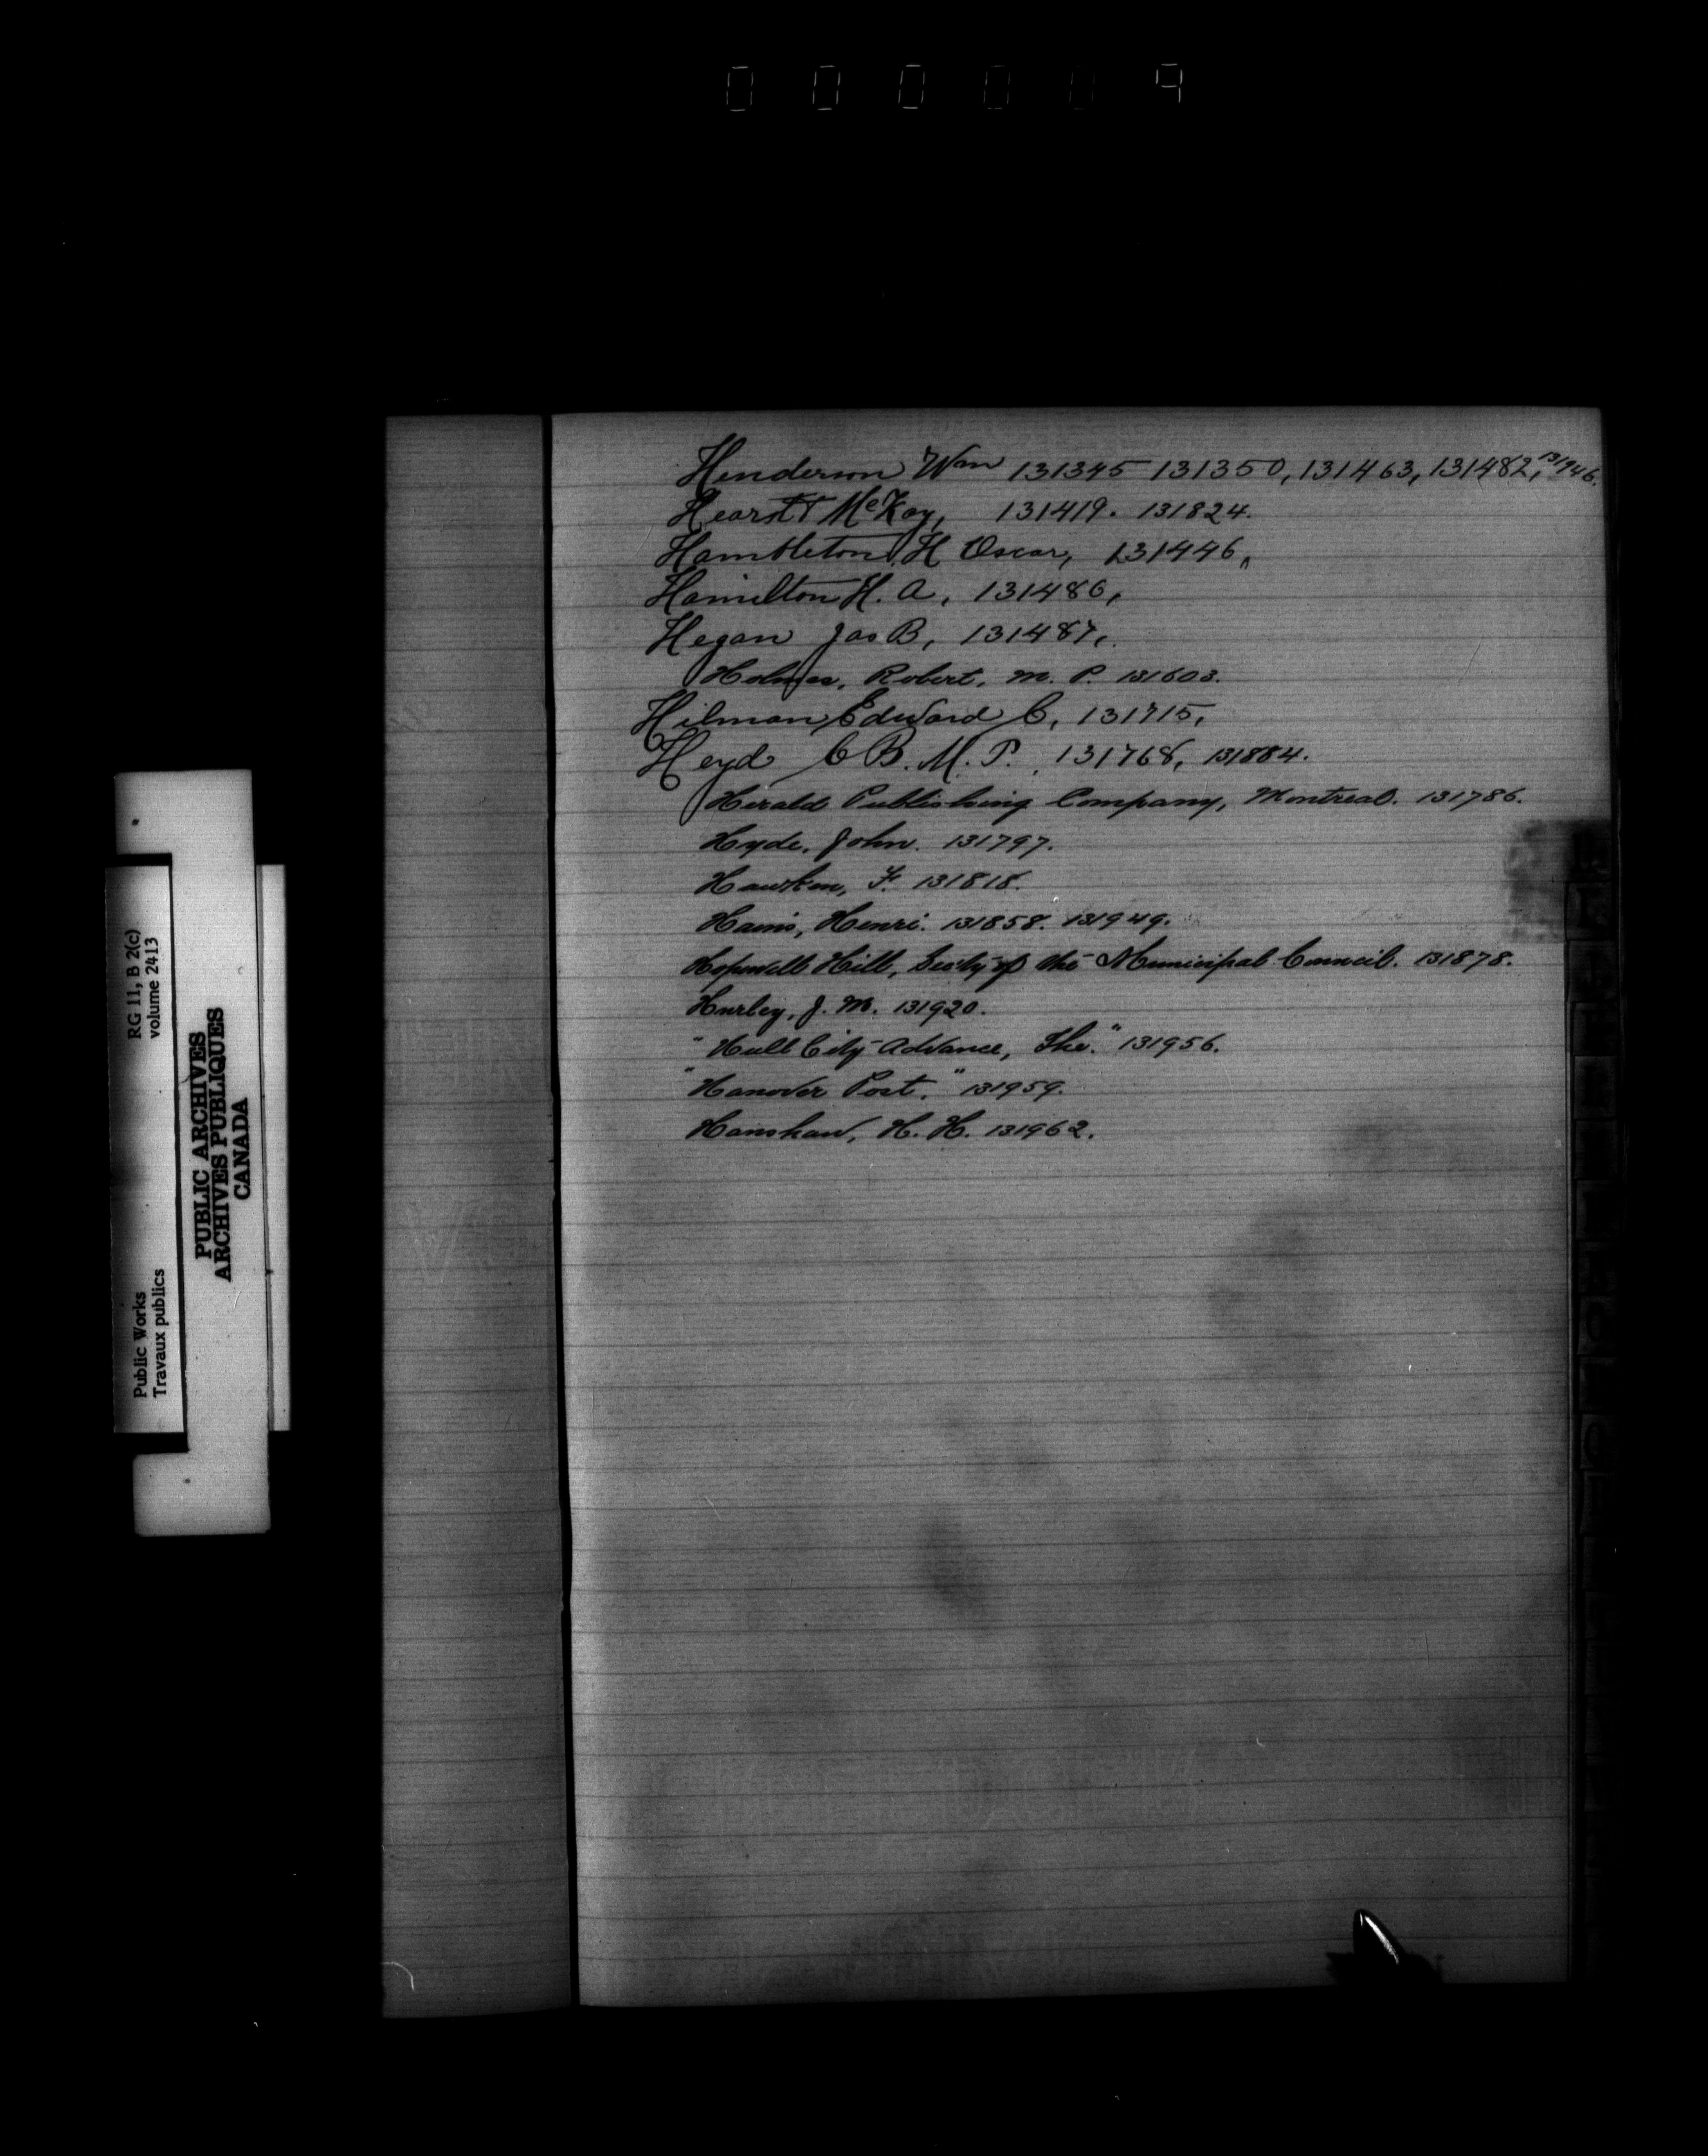 0 0 0 0 0 9
Henderson Wm 131345 131350, 131463, 131482, 131946.
Hearst & McKay, 131419. 131824.
Hambleton H Oscar, 131446,
Hamilton H. A, 131486,
Hegan Jas B, 131487,
Holmes, Robert, M. P. 131603.
Hilman Edward C, 131715,
Heyd C B. M. P. 131768, 131884.
Herald Publishing Company, Montreal. 131786.
Hyde, John. 131797.
Hawken, F. 131818.
Hains, Henri. 131858. 131949.
Hopewell Hill, Sec'ty of the Municipal Council. 131878.
Hurley, J. M. 131920.
"Hull City Advance, The." 131956.
"Hanover Post." 131959.
Hanshaw, H. H. 131962.
RG 11, B 2(c)
volume 2413
Public Works
Travaux publics
PUBLIC ARCHIVES
ARCHIVES PUBLIQUES
CANADA